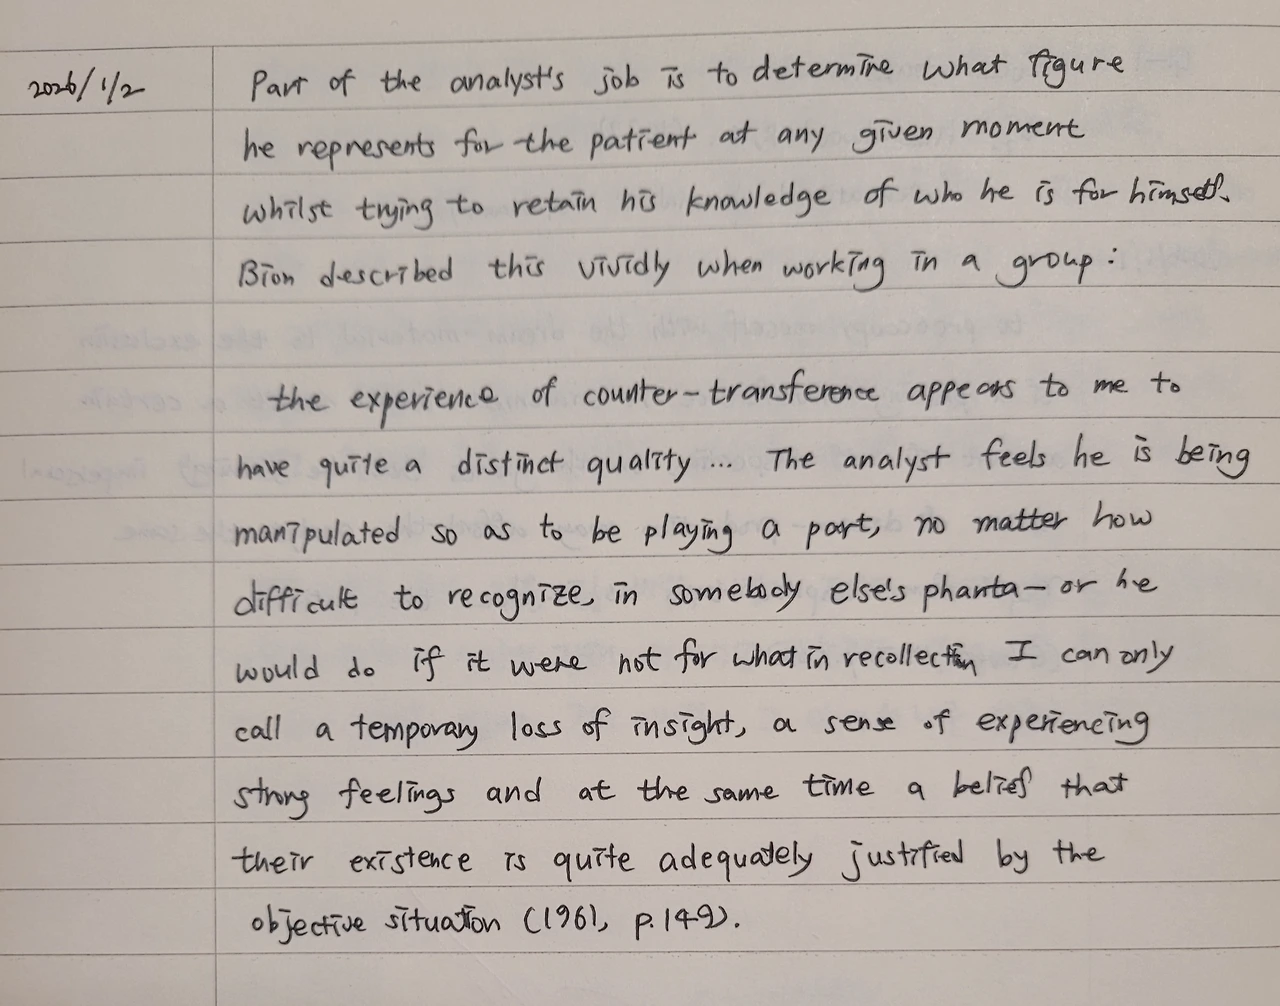 2026/1/2
Part of the analyst's job is to determine what figure
he represents for the patient at any given moment
whilst trying to retain his knowledge of who he is for himself.
Bion described this vividly when working in a group:
the experience of counter-transference appears to me to
have quite a distinct quality... The analyst feels he is being
manipulated so as to be playing a part, no matter how
difficult to recognize, in somebody else's phanta- or he
would do if it were not for what in recollection I can only
call a temporary loss of insight, a sense of experiencing
strong feelings and at the same time a belief that
their existence is quite adequately justified by the
objective situation (1961, p.149).